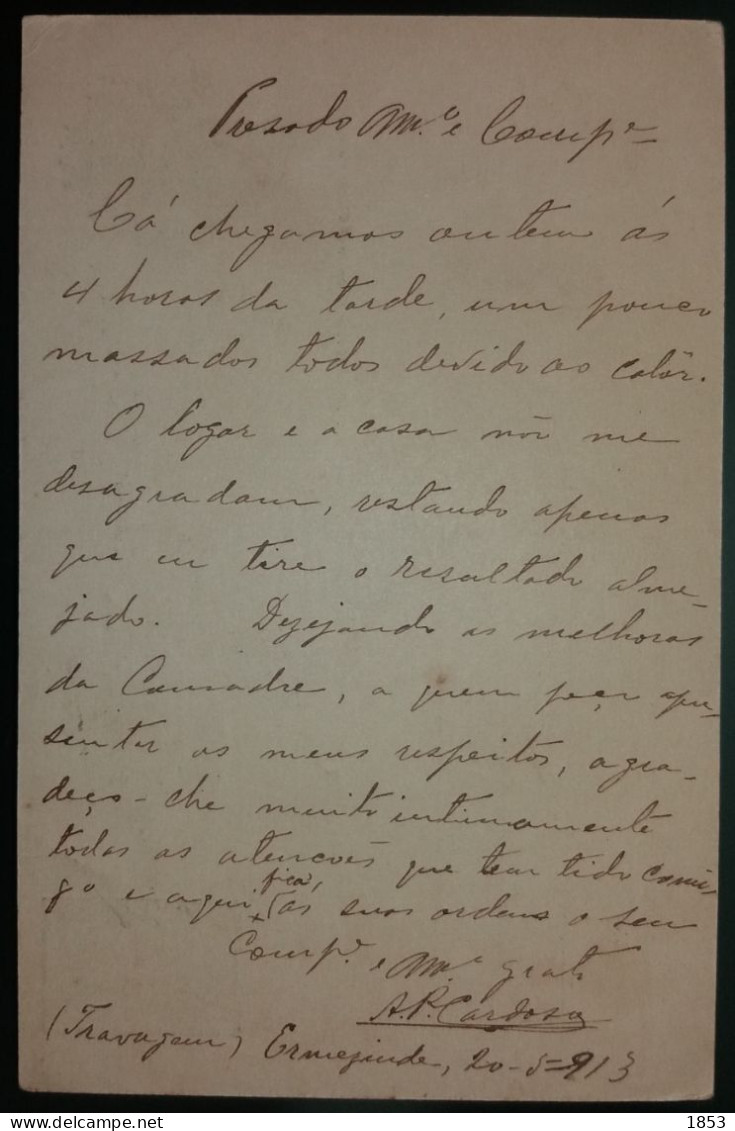 Presado Am.º e Comp.e
Cá chegamos ontem ás
4 horas da tarde, um pouco
massados todos devido ao calôr.
O logar e a casa não me
desagradam, restando apenas
que eu tire o resultado alme-
jado. Dezejando as melhoras
da Comadre, a quem peço apre-
sentar os meus respeitos, agra-
deço-lhe muito intimamente
todas as atencoẽs que tem tido comi-
go e aqui fica, ás suas ordens o seu
Comp.e e Am.º grato
A. P. Cardoso
(Travagem) Ermezinde, 20-5-913
1853